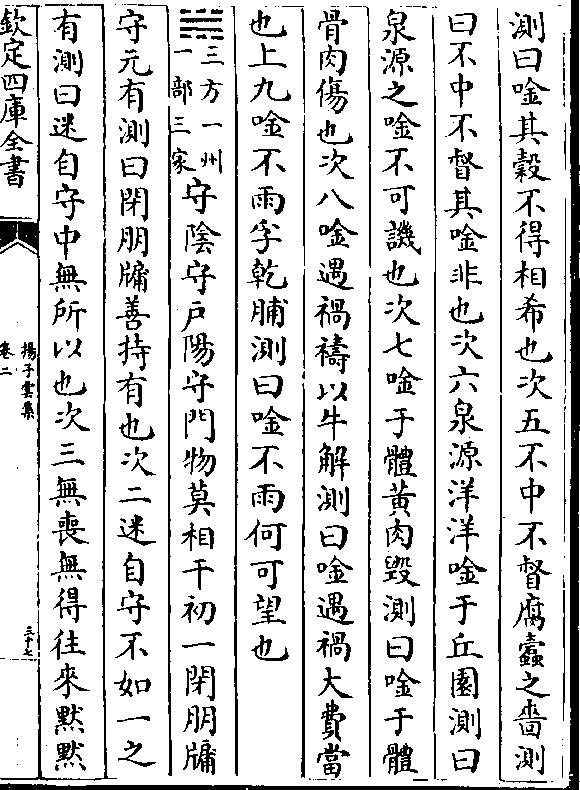 測曰唫其穀不得相希也次五不中不督腐蠹之嗇測
曰不中不督其唫非也次六泉源洋洋唫于丘園測曰
泉源之唫不可譏也次七唫于體黃肉毀測曰唫于體
骨肉傷也次八唫遇禍禱以牛解測曰唫遇禍大費當
也上九唫不雨孚乾脯測曰唫不雨何可望也
三方一州
一部三家
守陰守戶陽守門物莫相干初一閉朋牖
守元有測曰閉朋牖善持有也次二迷自守不如一之
有測曰迷自守中無所以也次三無喪無得往來黙黙
欽定四庫全書
揚子雲集
卷二
三十七